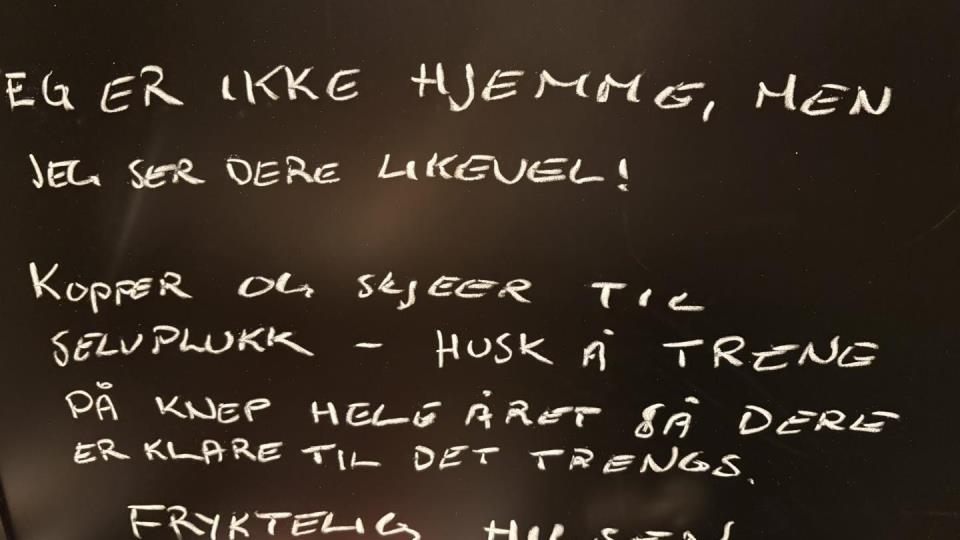 EG ER IKKE HJEMME, MEN
JEG SER DERE LIKEVEL!
KOPPER OG SKJEER TIL
SELVPLUKK - HUSK Å TRENE
PÅ KNEP HELE ÅRET SÅ DERE
ER KLARE TIL DET TRENGS.
FRYKTELIG HILSEN